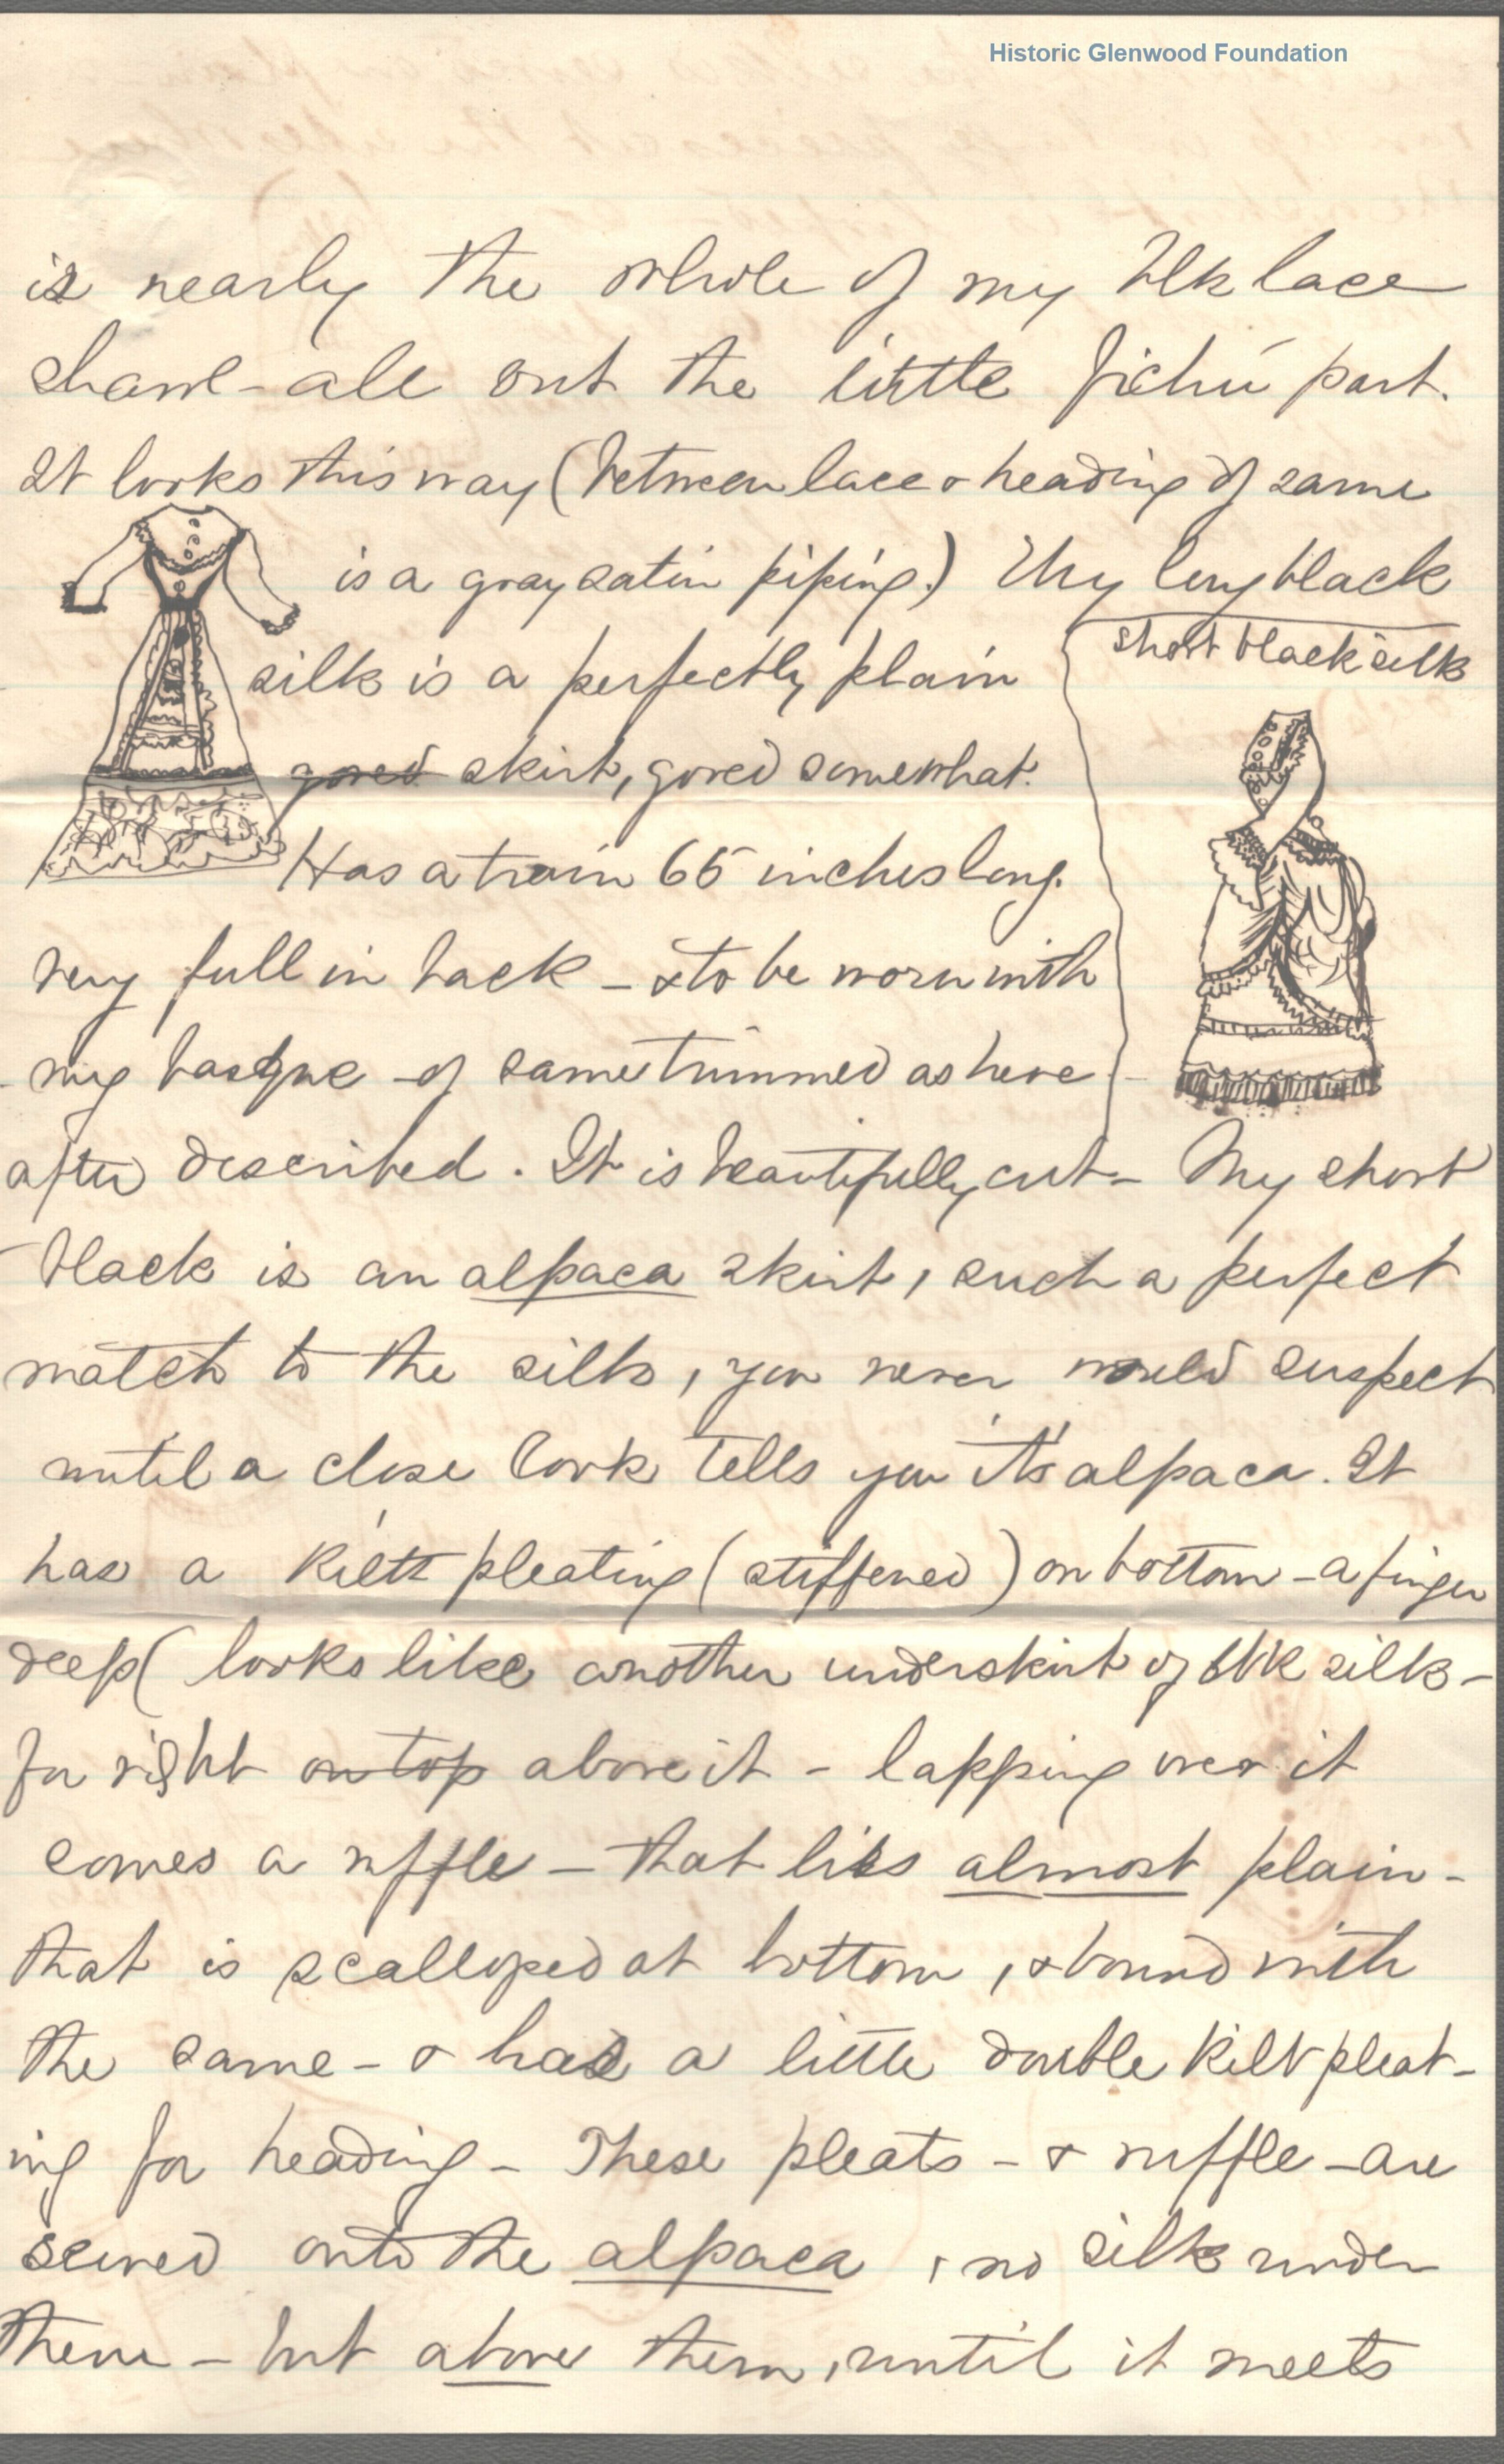 Historic Glenwood Foundation
is nearly the whole of my blk lace
shawl - all but the little fichú part.
It looks this way (between lace & heading of same
is a gray satin piping.) My long black
short black silk
silk is a perfectly plain
gored skirt, gored somewhat.
Has a train 65 inches long.
very full in back - & to be worn with
my basque - of same trimmed as here
after described. It is beautifully cut - My short
black is an alpaca skirt, such a perfect
match to the silk, you never would suspect
until a close look tells you it's alpaca. It
has a kilt pleating (stiffened) on bottom - a finger
deep (looks like another underskirt of blk silk -
for right on top above it - lapping over it
comes a ruffle - that lies almost plain -
that is scalloped at bottom, & bound with
the same - & has a little double kilt pleat-
ing for heading - These pleats - & ruffle - are
sewed onto the alpaca, no silk under
them - but above them, until it meets